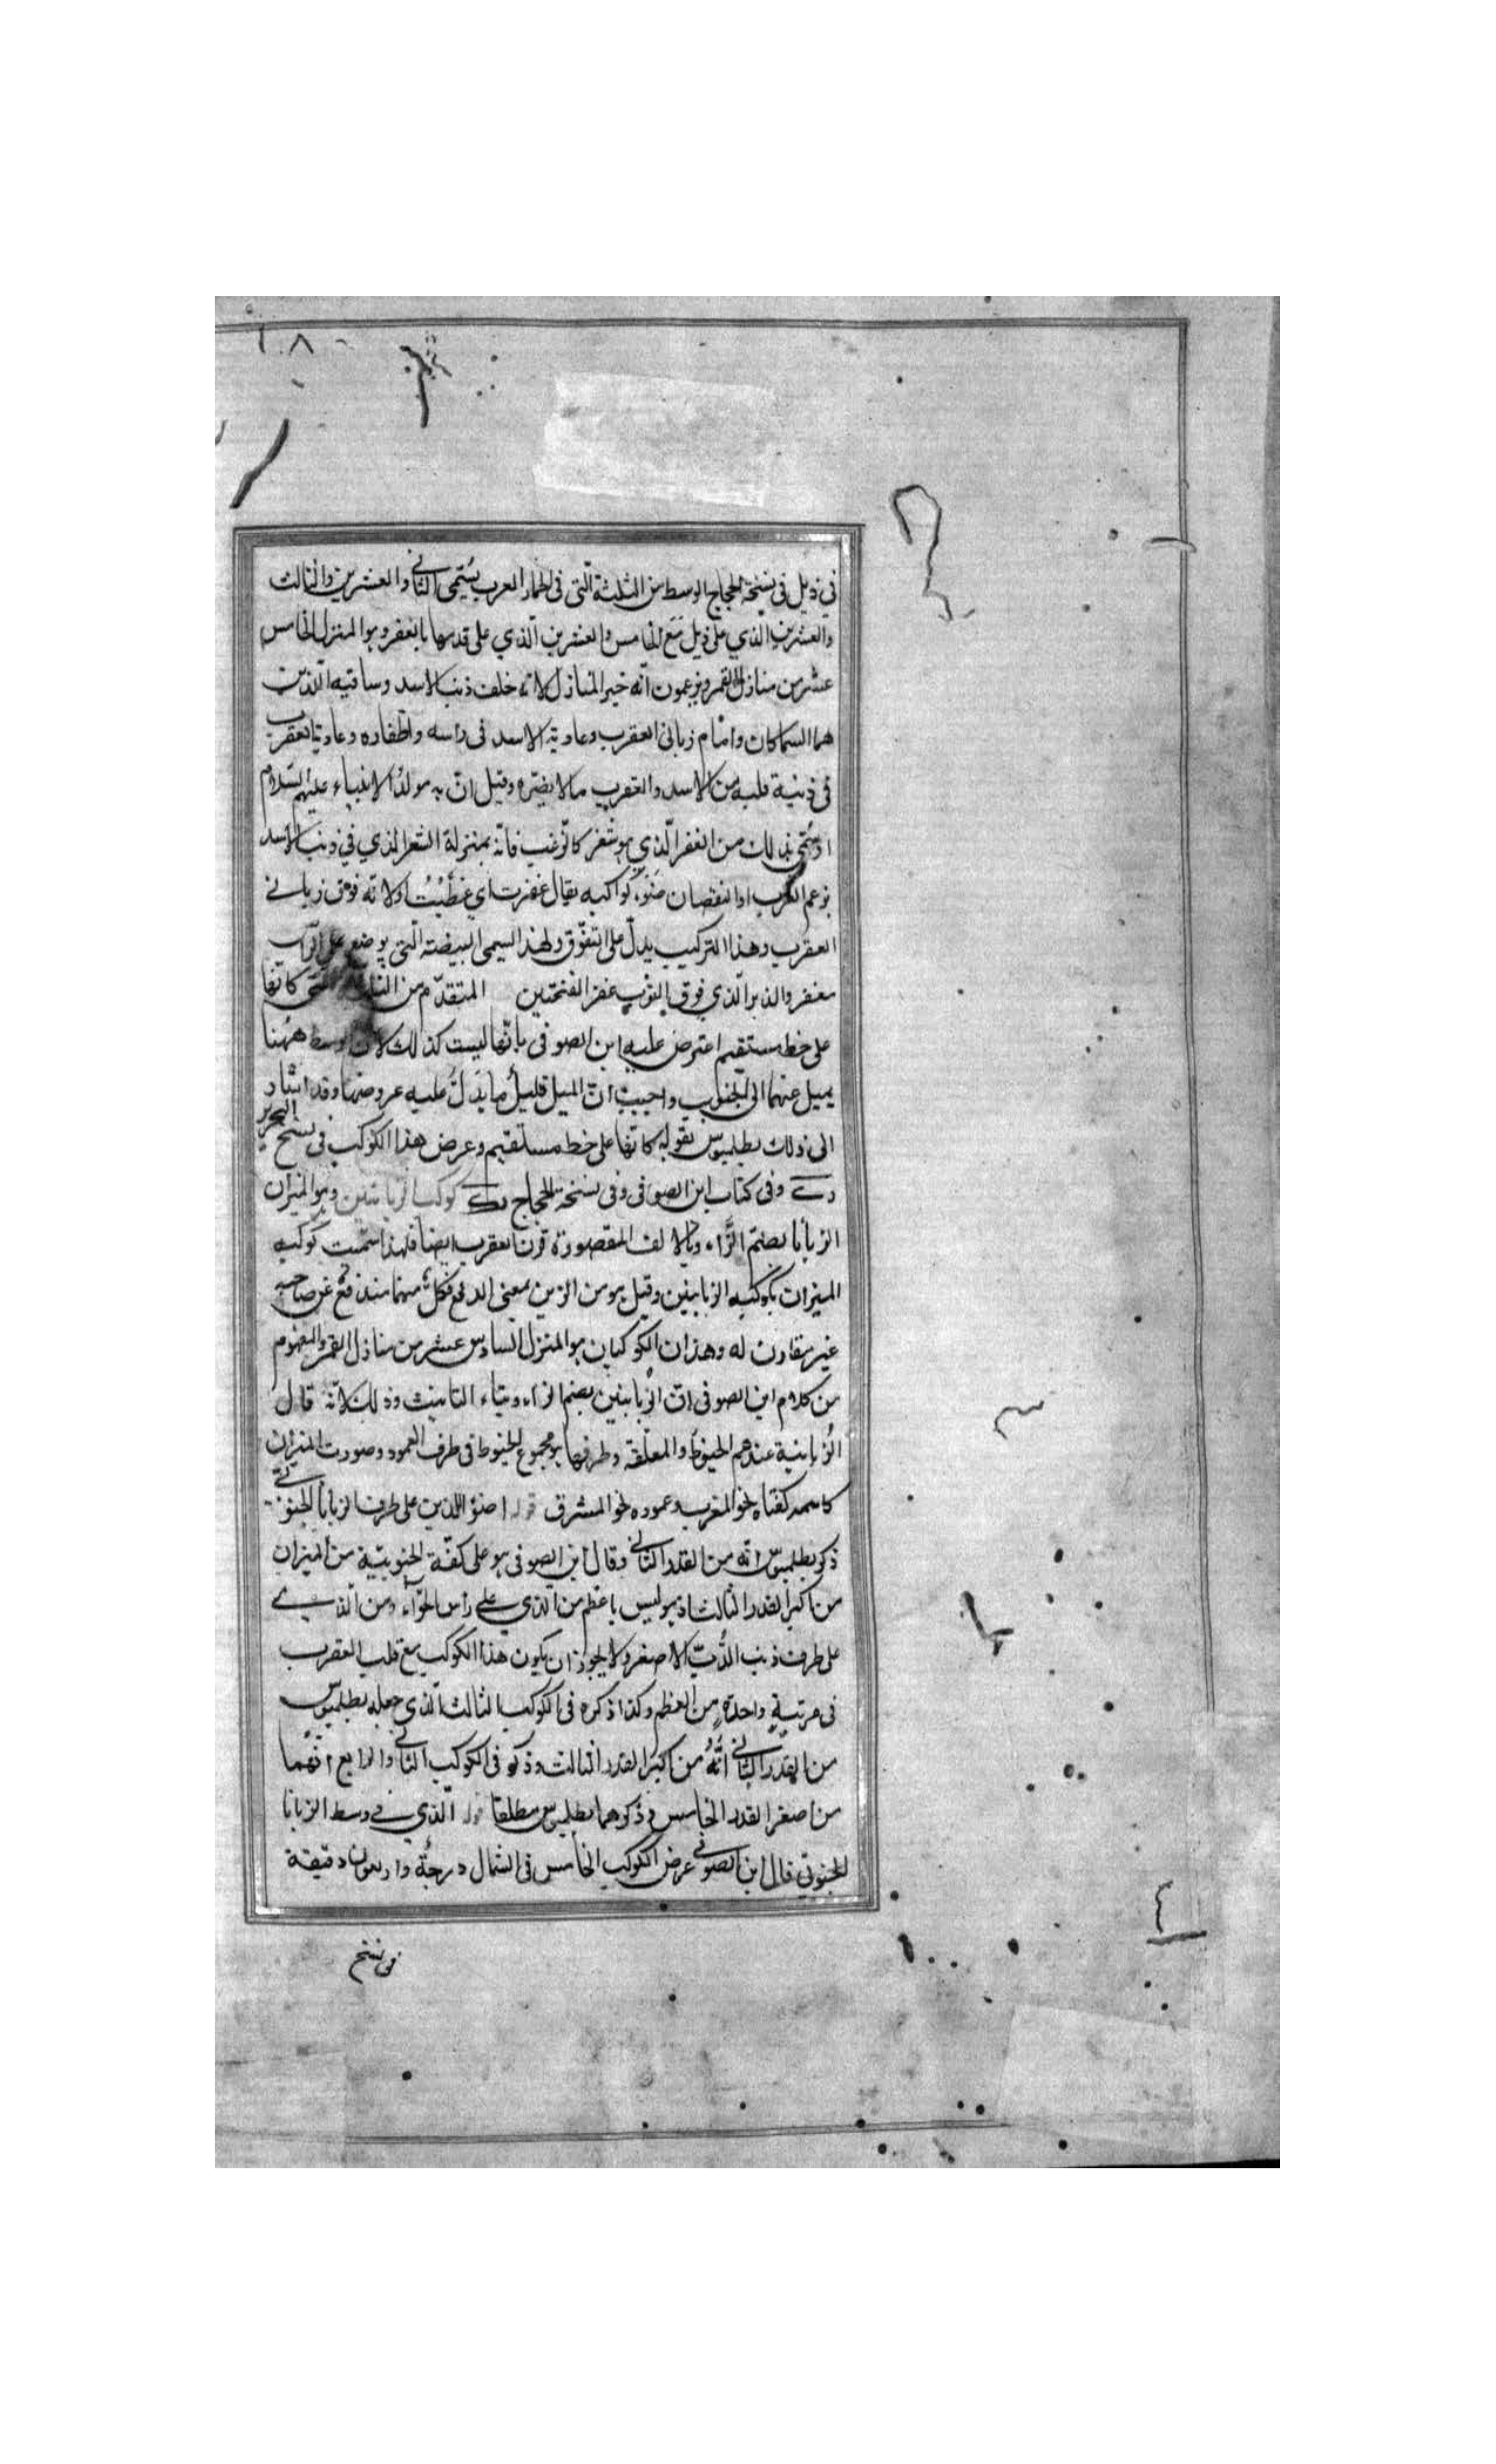 ١٠٨
في ذيل في نسخة الحجاج الوسط من الثلثة التي في العرب يسمى الثاني والعشرين والثالث
والعشرين الذي على ذيل مع الخامس والعشرين الذي على قدمها بالغفر وهو المنزل الخامس
عشر من منازل القمر ويزعمون انه خير المنازل لانه خلف ذنب الاسد وساقيه اللذين
هما السماكان وامام زباني العقرب وعادية الاسد في راسه واظفاره وعادية العقرب
في ذنبه من الاسد والعقرب مالا يضره وقيل ان به مولد الانبياء عليهم السلام
او سمي بذلك من الغفر الذي هو شعر كالزغب فانه بمنزلة الشعر الذي في ذنب الاسد
بزعم العرب او لنقصان ضوء كواكبه يقال غفرت اي غطيت او لانه فوق زباني
العقرب وهذا التركيب يدل على التفوق ولهذا سمى البيضة التي يوضع على الراس
مغفر والذي فوق الثوب غفر الفتحتين المتقدم من كانها
على خط مستقيم اعترض عليه ابن الصوفي بانها ليست كذلك لان الوسط ههنا
يميل عنهما الى الجنوب واجيب ان الميل قليل ما يدل عليه عروضها وقد اشار
الى ذلك بطلميوس بقوله كانها على خط مستقيم وعرض هذا الكوكب في نسخ التحرير
وفي كتاب ابن الصوفي وفي نسخة الحجاج كوكب الزبانيين وهو الميزان
الزبانا بضم الزاء وبالالف المقصورة قرن العقرب ايضا فلهذا سميت كوكبه
الميزان بكوكبه الزبانيين وقيل هو من الزبن بمعنى الدفع فكل منهما مندفع عن صاحبه
غير مقارن له وهذان الكوكبان هو المنزل السادس عشر من منازل القمر والمفهوم
من كلام ابن الصوفي ان الزبانيين بضم الزاء وبتاء التانيث وذلك لانه قال
الزبانية عندهم الخيوط والمعلقة وطرفها هو مجموع الخيوط في طرف العمود وصورت الميزان
كفتاه نحو المغرب وعموده نحو المشرق قوله اضوؤ اللذين على طرف الزبانا الجنوبي
ذكر بطلميوس انه من القدر الثاني وقال ابن الصوفي هو على كفة الجنوبية من الميزان
من اكبر القدر الثالث اذ هو ليس باعظم من الذي على راس الحواء ومن الذي
على طرف ذنب الدب الاصغر ولا يجوز ان يكون هذا الكوكب مع قلب العقرب
في مرتبة واحدة من العظم وكذا ذكره في الكوكب الثالث الذي جعله بطلميوس
من القدر الثاني انه من اكبر القدر الثالث وذكر في الكوكب الثاني والرابع انهما
من اصغر القدر الخامس وذكرهما بطلميوس مطلقا قوله الذي في وسط الزبانا
الجنوبي قال ابن الصوفي عرض الكوكب الخامس في الشمال درجة واربعون دقيقة